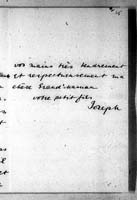 vos mains très tendrement
et respectueusement ma
chère Grand'maman
votre petit fils
Joseph